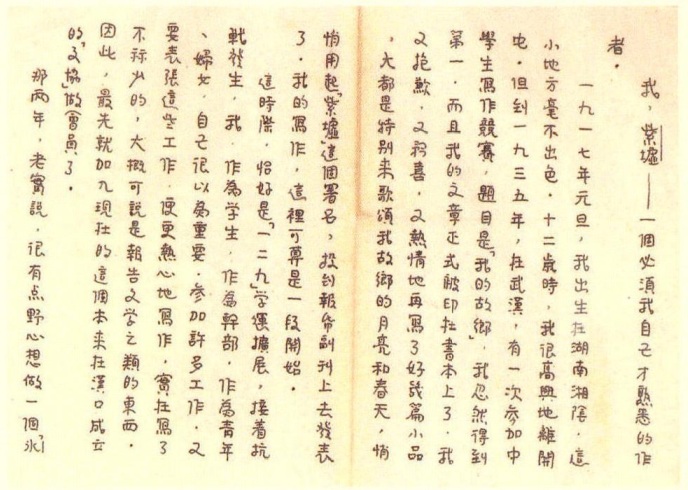 我,紫墟——一個必須我自己才熟悉的作
者.
一九一七年元旦,我出生在湖南湘陰.這
小地方毫不出色.十二歲時,我很高興地離開
它.但到一九三五年,在武漢,有一次參加中
學生寫作競賽,題目是「我的故鄉」.我忽然得到
第一.而且我的文章正式被印在書本上了.我
又抱歉,又喜,又熱情地再寫了好幾篇小品
,大都是特别来歌頌我故鄉的月亮和春天,悄
悄用起「紫墟」這個署名,投到報帋副刊上去發表
了.我的寫作,這裡可算是一段開始.
這時際,恰好是「一二九」学運擴展,接着抗
戰發生,我,作為学生,作為幹部,作為青年
、婦女,自己很以為重要.參加許多工作.又
要表張這些工作,便更熱心地寫作,實在寫了
不祘少的,大概可說是報告文学之類的東西.
因此,最先就加入現在的這個本来在漢口成立
的「文協」做會員了.
那兩年,老實說,很有点野心想做一個